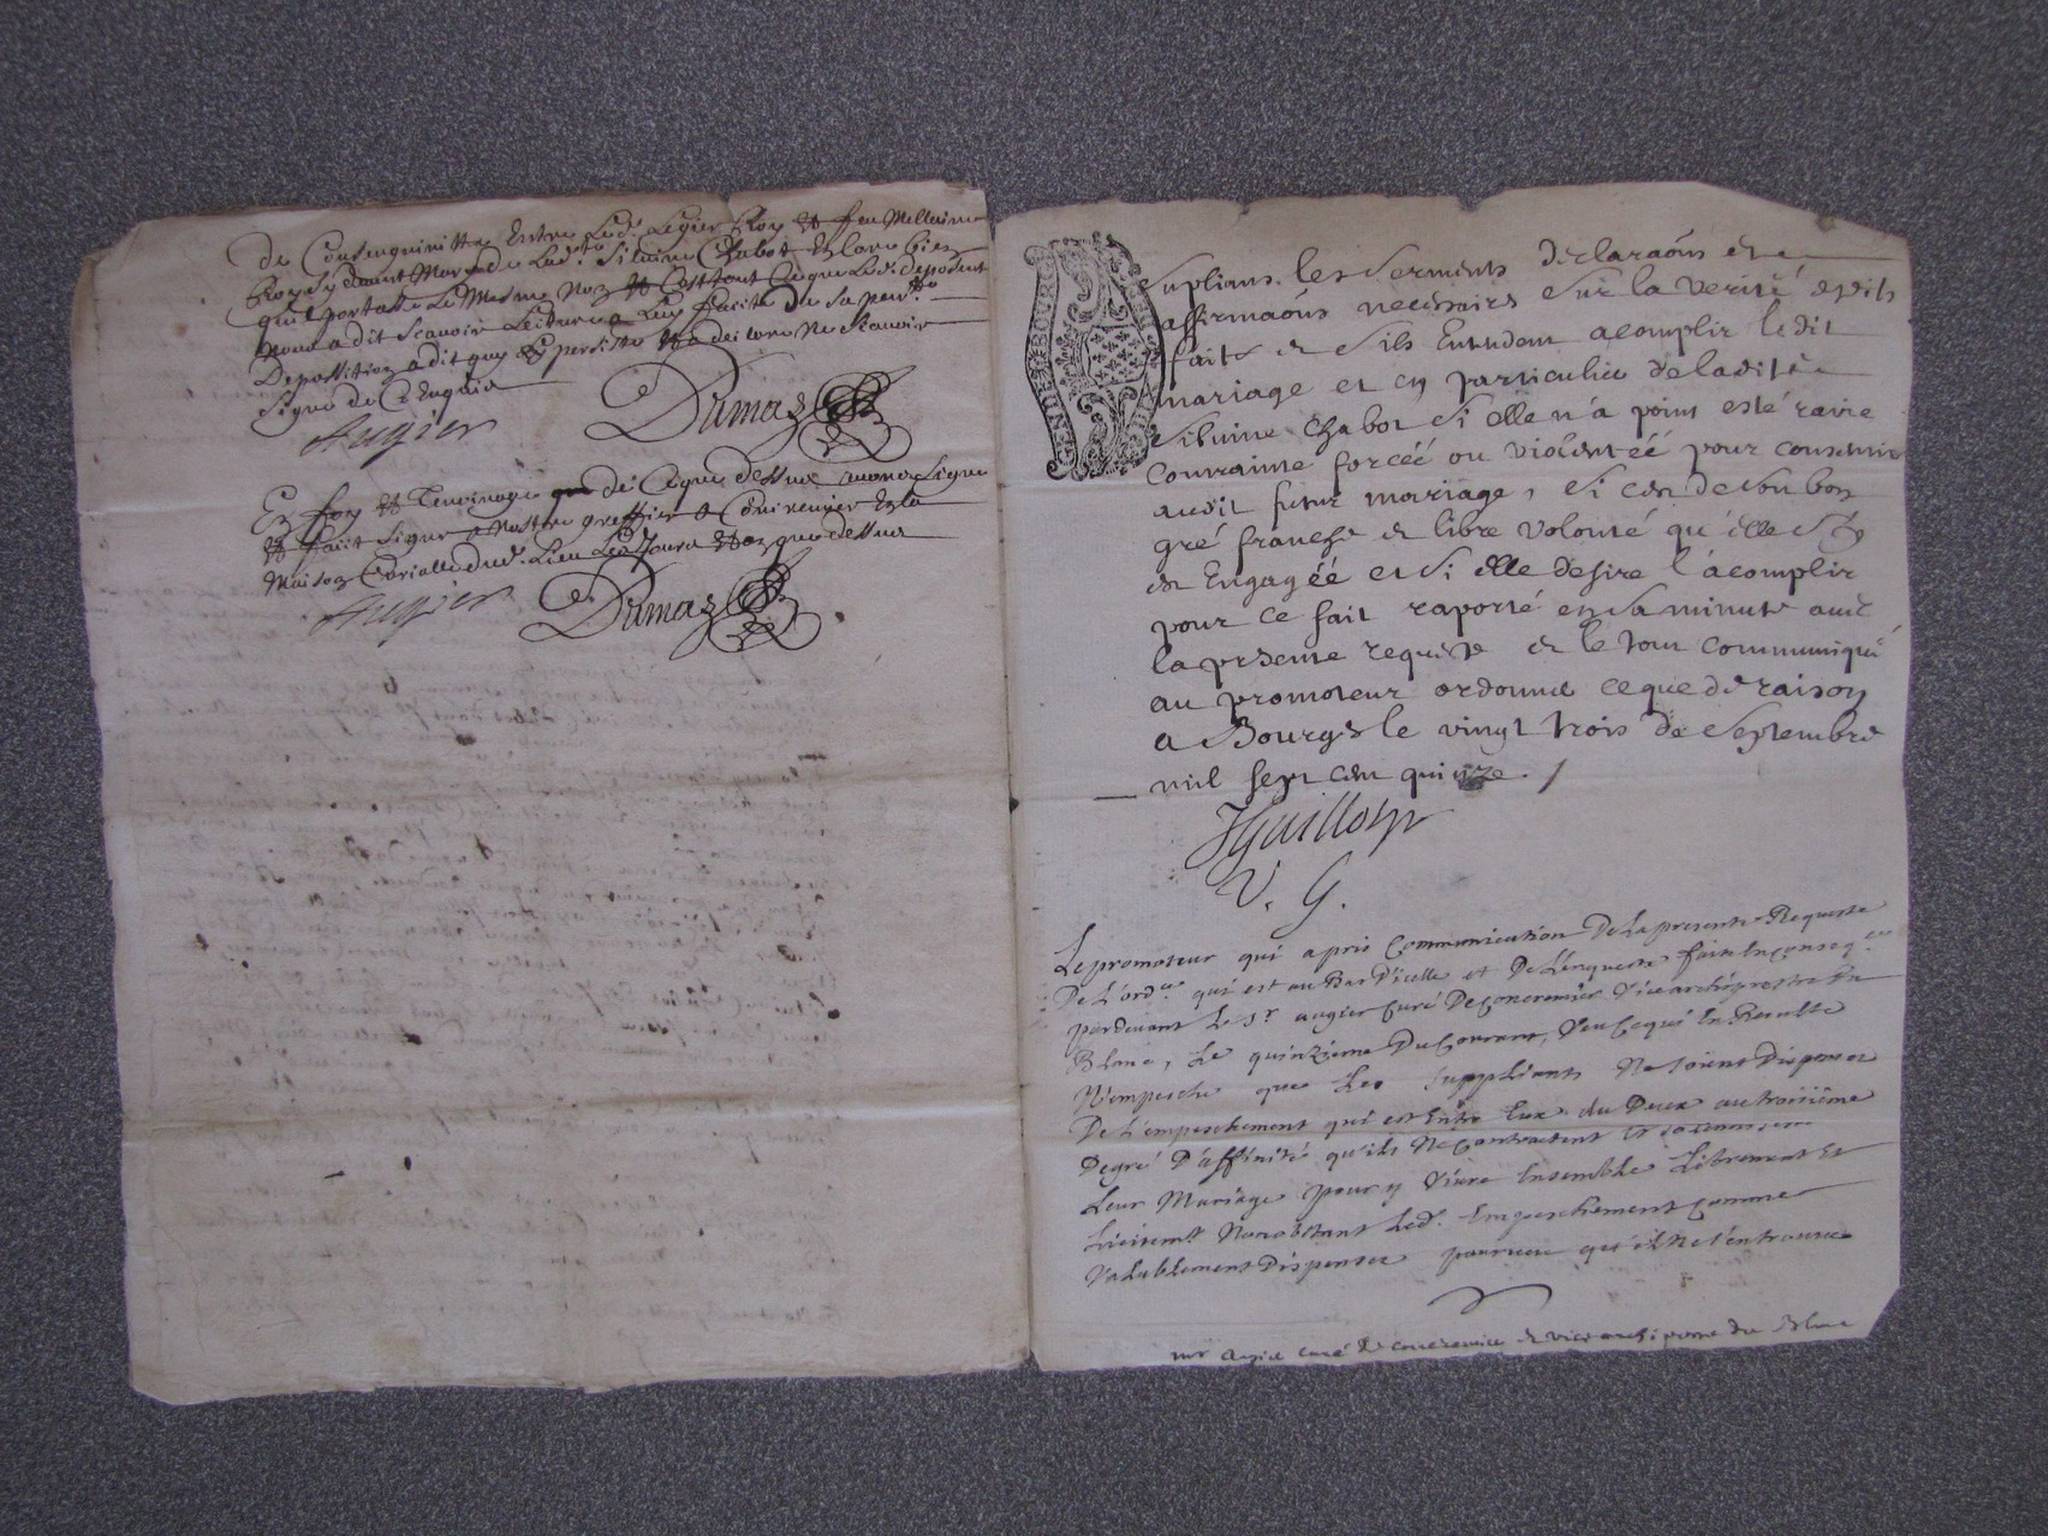 de Consenguinitte Entre Led. Legier Roy et feu Mellaine
Roy Vivant Mary de Lad.te Silvine Chabot Encore bien
quil portasse Le Mesme Noz et Cest tout Ceque Led. depozent
Nous a dit scavoir Lecture a Luy faicte de sa pen.tte
Depossition a dit quy persiste et a declare Ne scavoir
signe de ce Enquis
Augier Dumaz
En foy et temoinage de Ceque dessus avons signe
et faict signer a Nostre greffier a Concremier En la
Maison Curialle dud. Lieu Led Jour et an que dessus
Augier Dumaz
GEN DE BOURGES
supliants les serments declaraõns et
affirmaõns necessaires sur la verité desdits
faits et sils Entendent acomplir ledit
mariage et en particulier de ladite
silvine chabot si elle n'a point esté ravie
contrainte forcéé ou violentéé pour consentir
audit futur mariage, si cest de son bon
gré franche et libre volonté qu'elle s'y
est Engagéé et si elle desire l'acomplir
pour ce fait raporté en sa minute avec
la presente requeste et le tout communiqué
au promoteur ordonné ceque de raison
a Bourges le vingt trois de Septembre
mil sept cent quinze. /
JGuillon
V. G.
Le promoteur qui a pris Communication De La presente Requeste
De L'ord.ce qui est au Bas D'icelle et De L'enqueste faite En conseq.ce
pardevant Le Sr augier Curé De Concremier Vicearchiprestre Du
Blanc, Le quinzieme Du Courant, Veu Ce qui En Resulte
N'empesche que Les suppliants Ne soient Dispensez
De L'empeschement qui est Entre Eux du Deux au troisiême
Degré D'affinité qu'ils Ne Contractent
Leur Mariage pour y Vivre Ensemble Librement Et
Licitem.t Nonobstant Led. Empeschement Comme
Valablement Dispensez pourveu qu'il ne s'en trouve
mr augier curé de concremier et vice archiprestre du Blanc